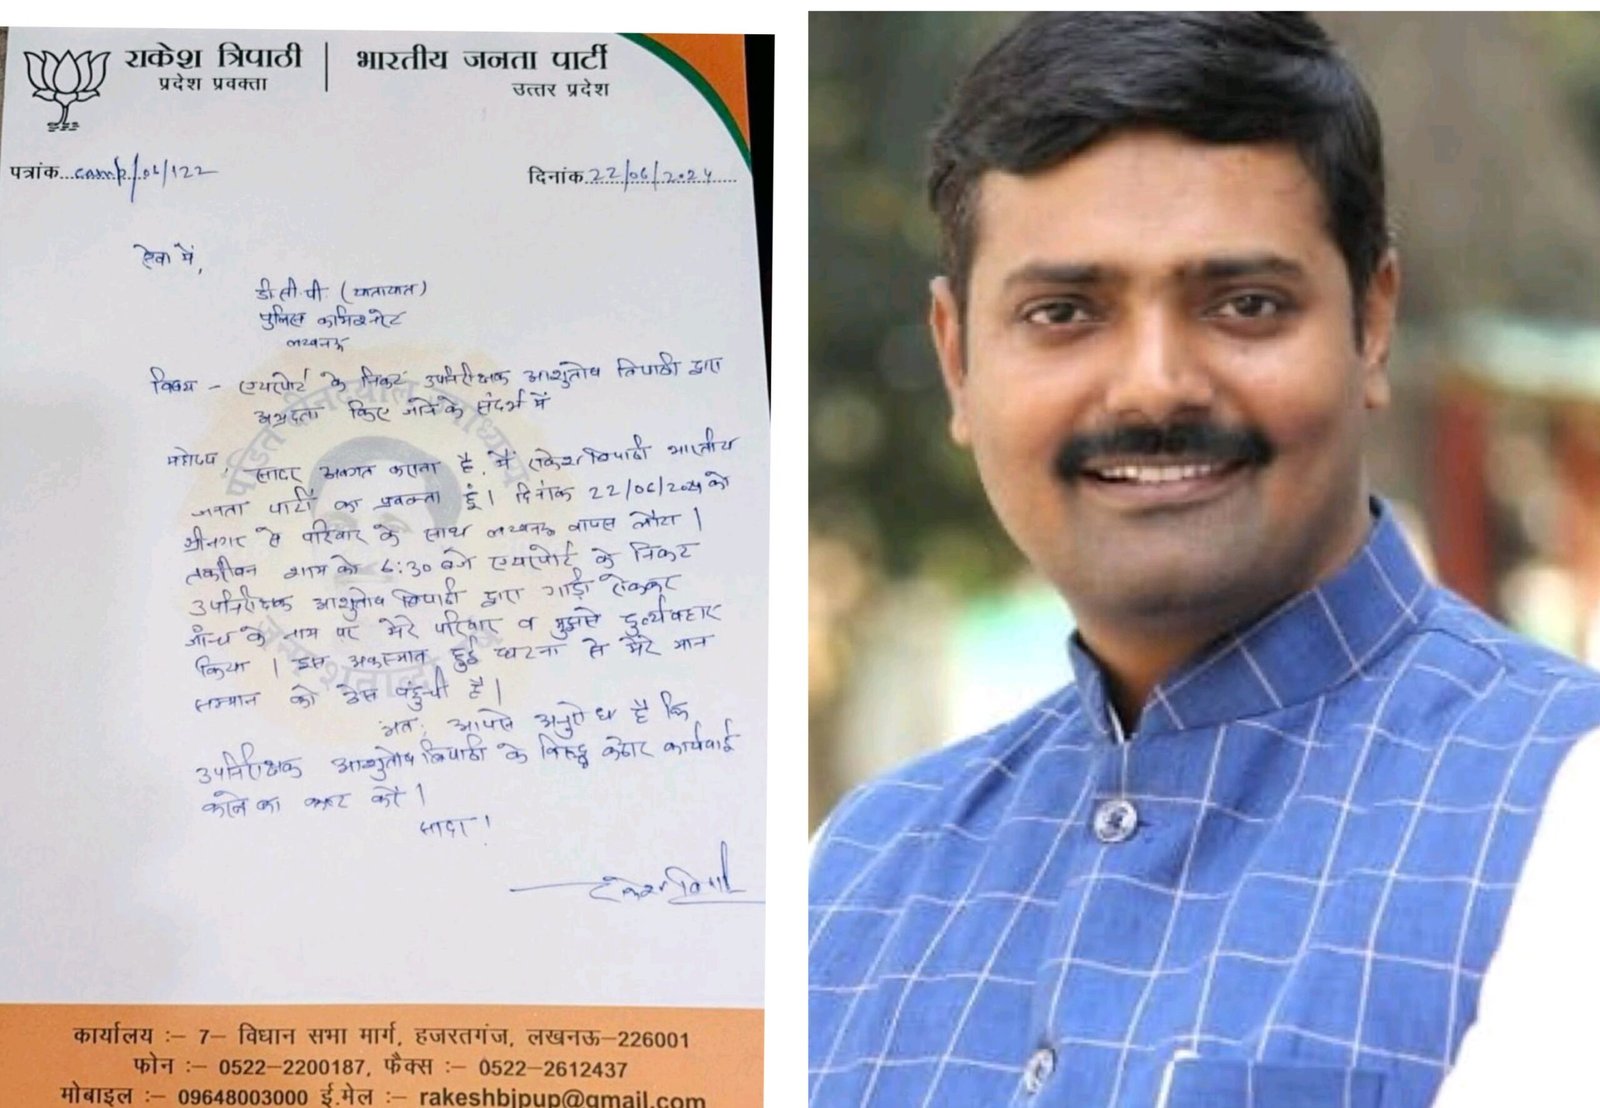 राकेश त्रिपाठी | भारतीय जनता पार्टी
प्रदेश प्रवक्ता उत्तर प्रदेश
पत्रांक...camp/06/122 दिनांक 22/06/2024
सेवा में,
डी.सी.पी (यातायात)
पुलिस कमिश्नरेट
लखनऊ
विषय - एयरपोर्ट के निकट उपनिरीक्षक आशुतोष त्रिपाठी द्वारा
अभद्रता किए जाने के संदर्भ में
महोदय,
सादर अवगत कराना है, मैं राकेश त्रिपाठी भारतीय
जनता पार्टी का प्रवक्ता हूं। दिनांक 22/06/2024 को
श्रीनगर से परिवार के साथ लखनऊ वापस लौटा।
तकरीबन शाम को 6:30 बजे एयरपोर्ट के निकट
उपनिरीक्षक आशुतोष त्रिपाठी द्वारा गाड़ी रोककर
जाँच के नाम पर मेरे परिवार व मुझसे दुर्व्यवहार
किया। इस अकस्मात हुई घटना से मेरे मान
सम्मान को ठेस पहुंची है।
अतः आपसे अनुरोध है कि
उपनिरीक्षक आशुतोष त्रिपाठी के विरुद्ध कठोर कार्यवाई
करने का कष्ट करें।
सादर।
राकेश त्रिपाठी
कार्यालय :– 7– विधान सभा मार्ग, हजरतगंज, लखनऊ–226001
फोन :– 0522-2200187, फैक्स :– 0522-2612437
मोबाइल :– 09648003000 ई.मेल :– rakeshbjpup@gmail.com